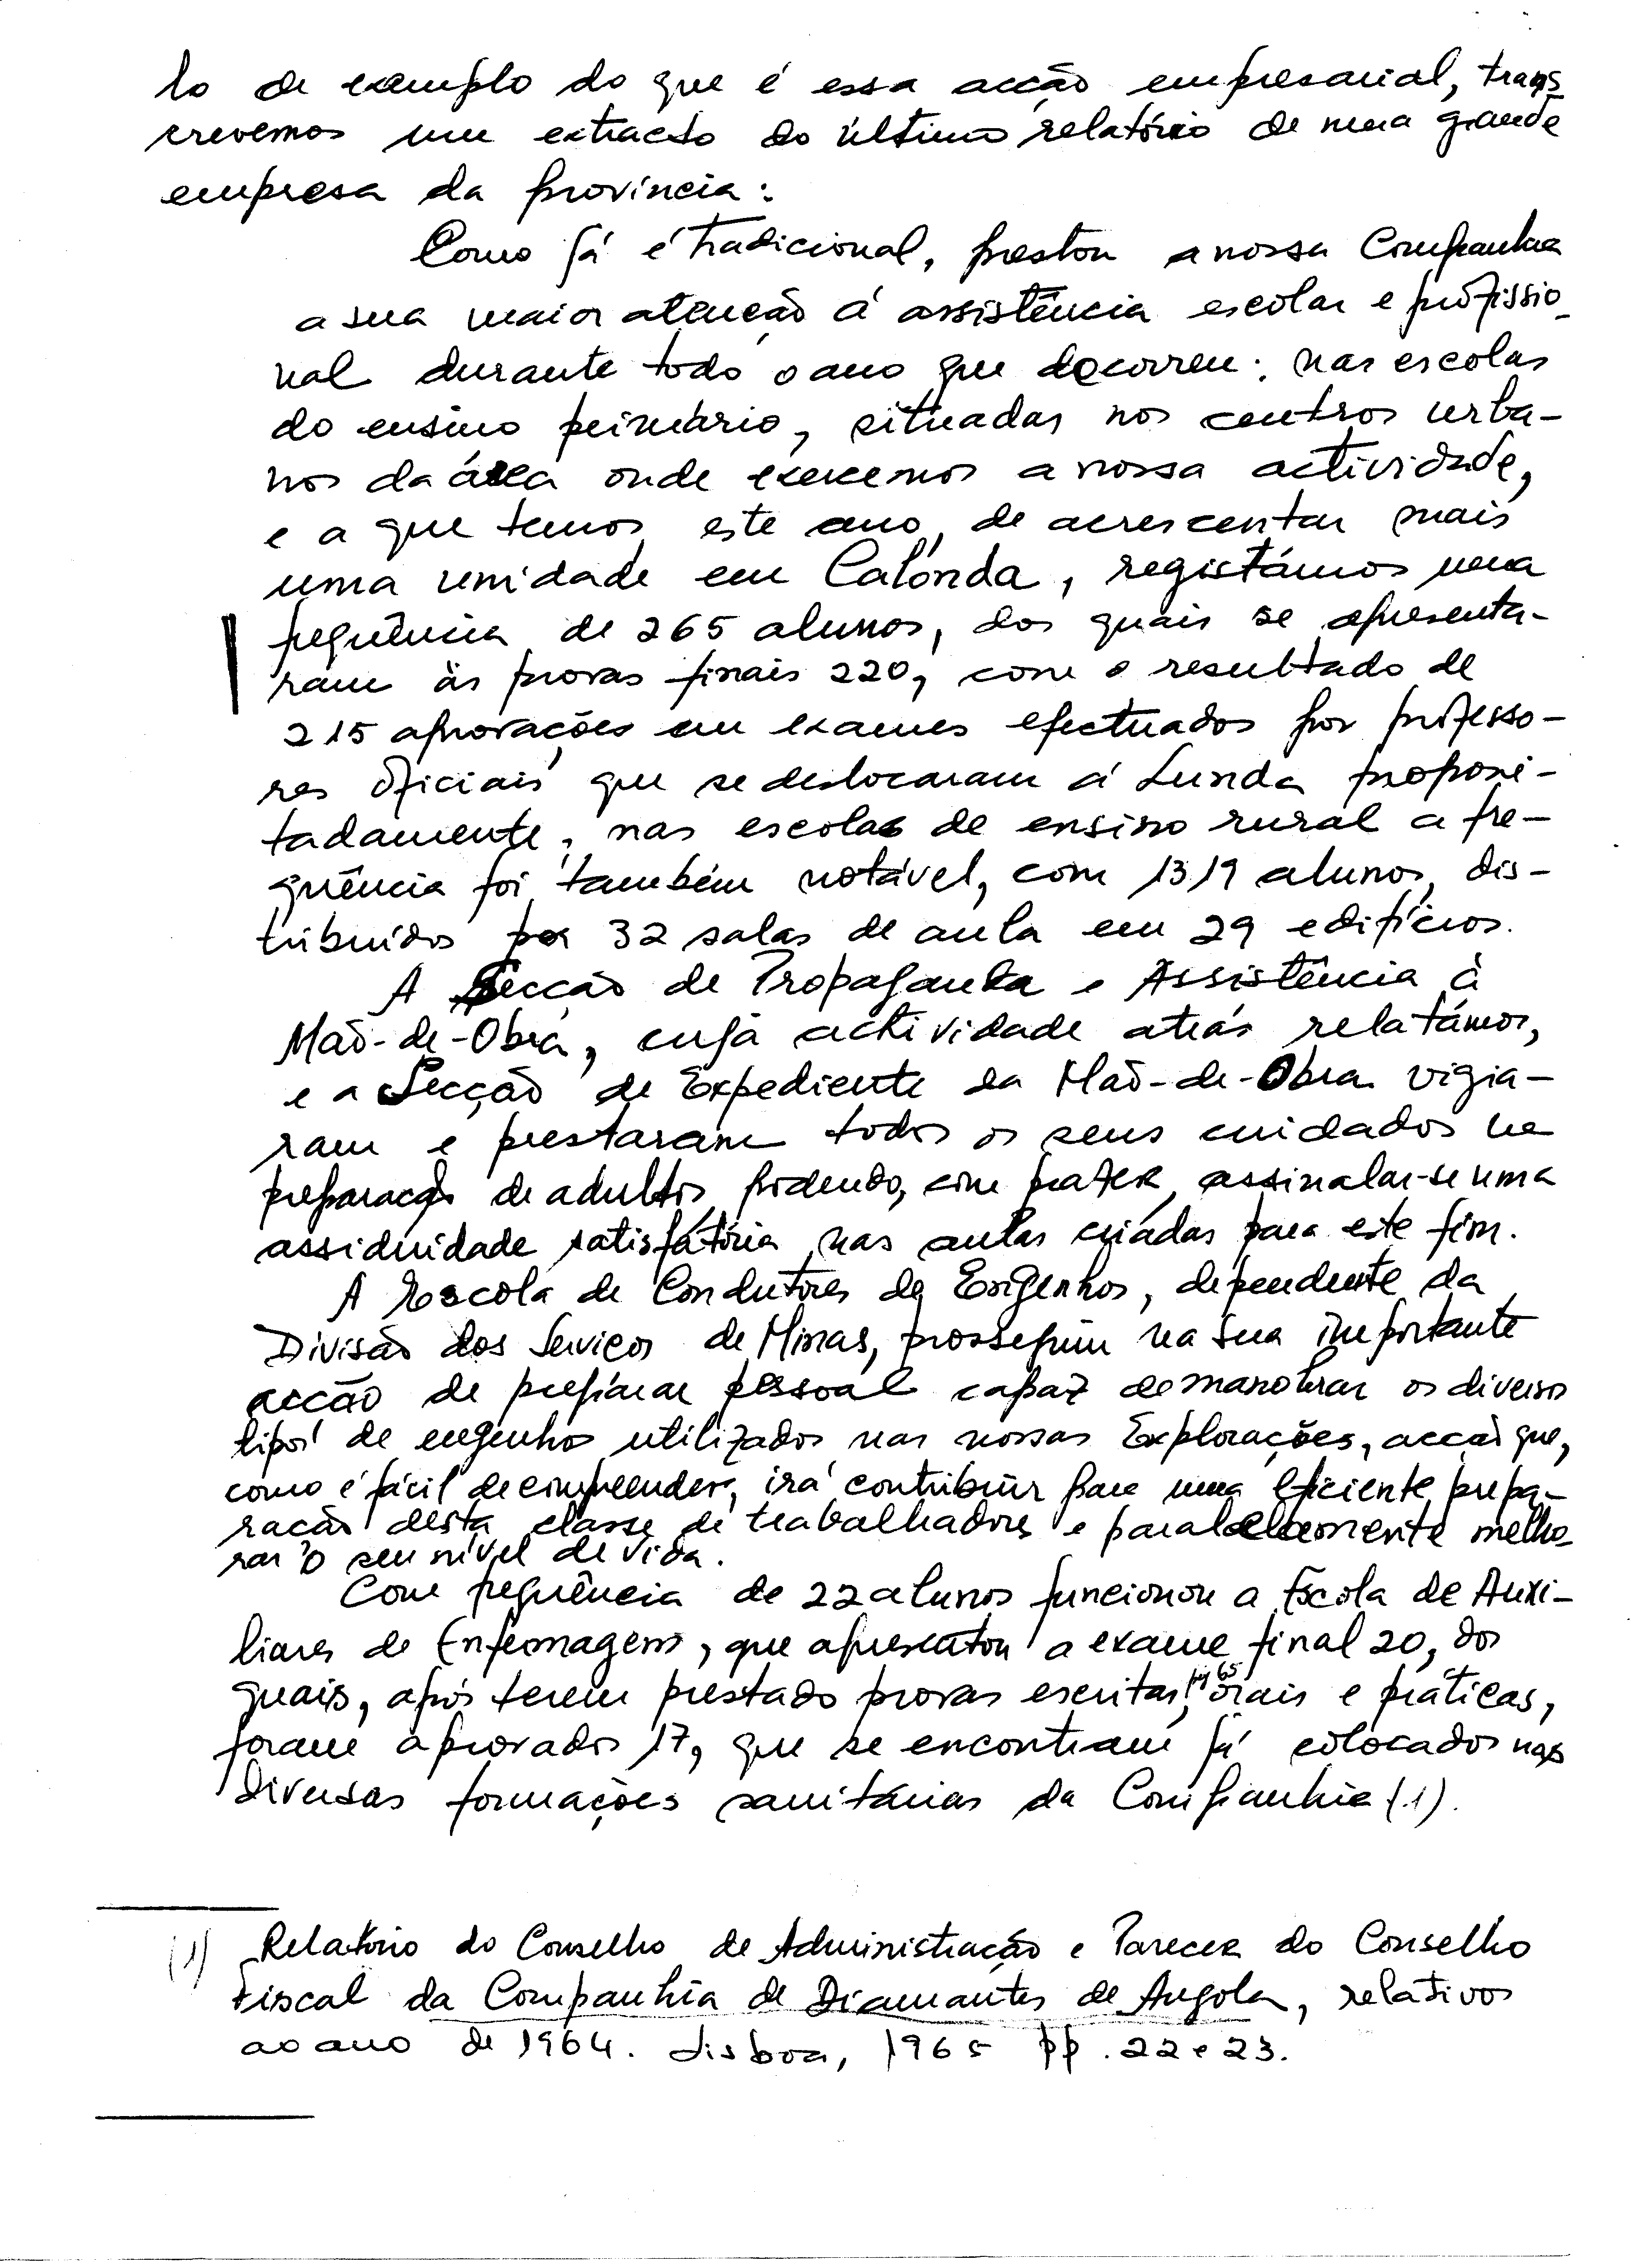 lo de exemplo do que é essa acção empresarial, trans
crevemos um extracto do último relatório de uma grande
empresa da província:
Como já é tradicional, prestou a nossa Companhia
a sua maior atenção à assistência escolar e profissio
nal durante todo o ano que decorreu; nas escolas
do ensino primário, situadas nos centros urba-
nos da área onde exercemos a nossa actividade,
e a que temos, este ano, de acrescentar mais
uma unidade em Calonda, registámos uma
frequência de 265 alunos, dos quais se apresenta-
ram às provas finais 220, com o resultado de
215 aprovações em exames efectuados por professo-
res oficiais que se deslocaram à Lunda proposi-
tadamente; nas escolas de ensino rural a fre-
quência foi também notável, com 1319 alunos, dis-
tribuídos por 32 salas de aula em 29 edifícios.
A Secção de Propaganda e Assistência à
Mão-de-Obra, cuja actividade atrás relatámos,
e a Secção de Expediente da Mão-de-Obra vigia-
ram e prestaram todos os seus cuidados na
preparação de adultos, podendo, com prazer, assinalar-se uma
assiduidade satisfatória nas aulas criadas para este fim.
A Escola de Condutores de Engenhos, dependente da
Divisão dos Serviços de Minas, prosseguiu na sua importante
acção de preparar pessoal capaz de manobrar os diversos
tipos de engenhos utilizados nas nossas Explorações, acção que,
como é fácil de compreender, irá contribuir para uma eficiente prepa-
ração desta classe de trabalhadores e paralelamente melho-
rar o seu nível de vida.
Com frequência de 22 alunos funcionou a Escola de Auxi-
liares de Enfermagem, que apresentou a exame final 20, dos
quais, após terem prestado provas escritas, orais e práticas,
foram aprovados 17, que se encontram já colocados nas
diversas formações sanitárias da Companhia (1).
(1) Relatório do Conselho de Administração e Parecer do Conselho
Fiscal da Companhia de Diamantes de Angola, relativos
ao ano de 1964. Lisboa, 1965 pp. 22 e 23.